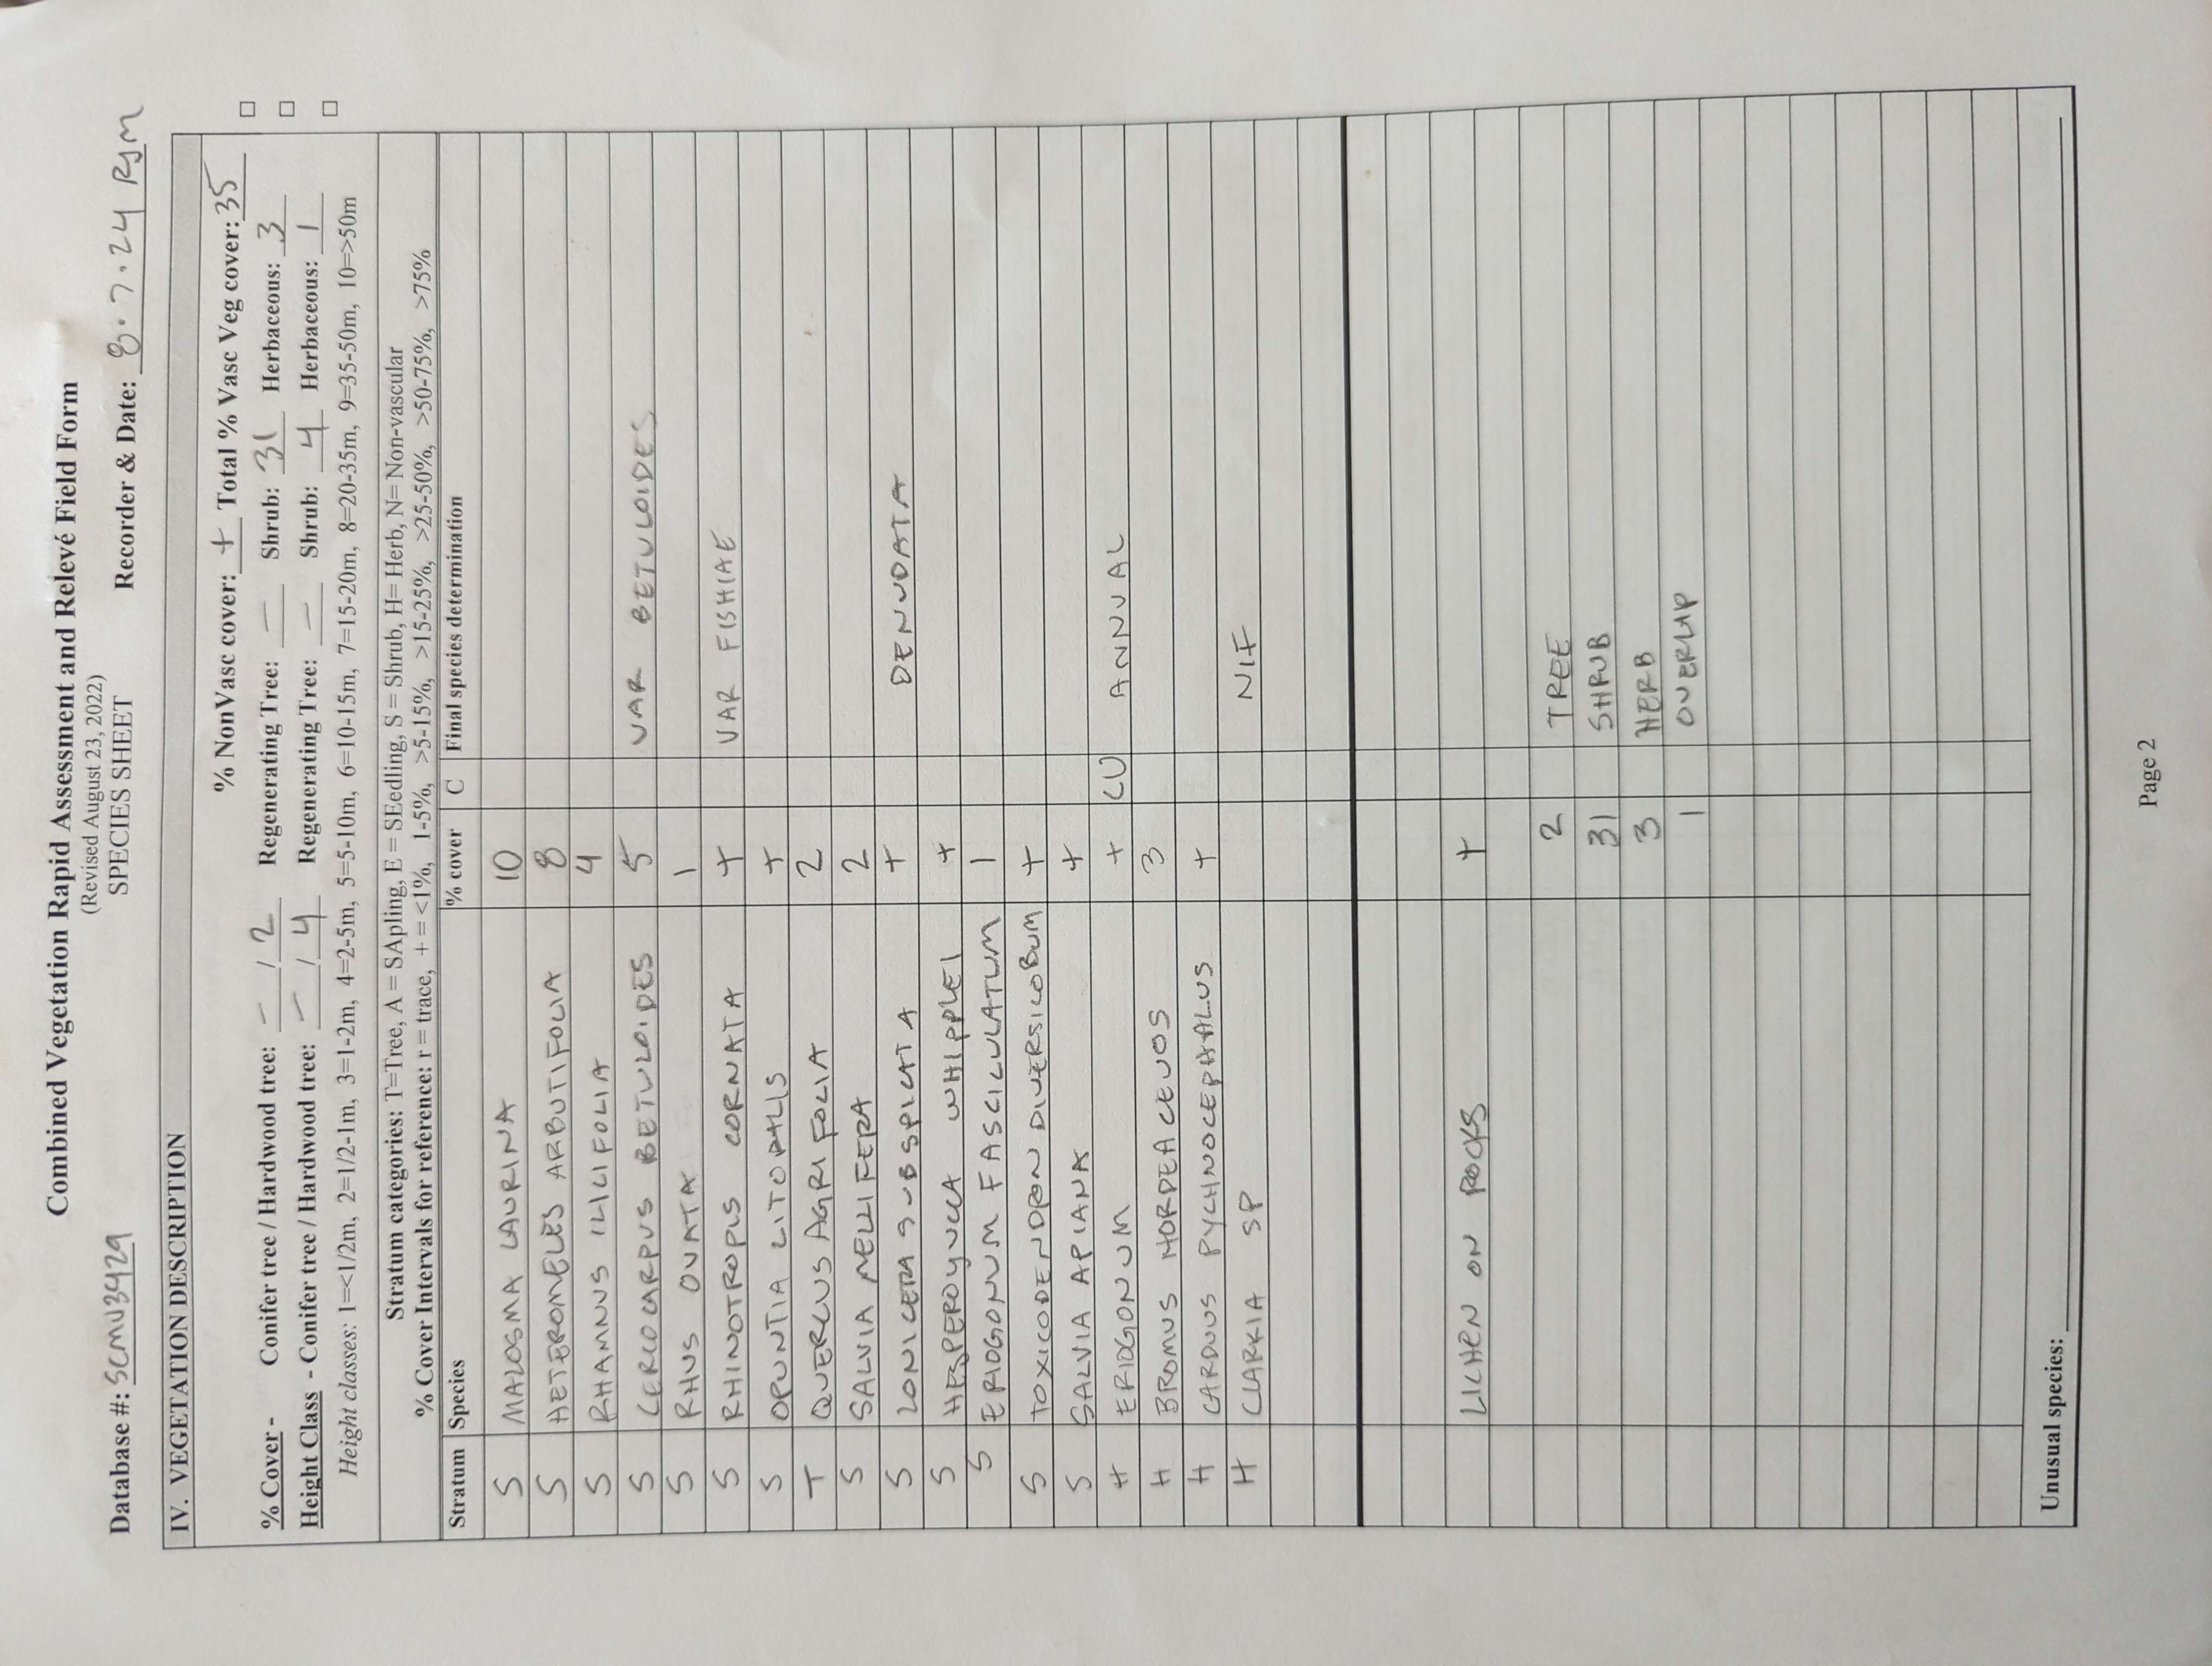 Combined Vegetation Rapid Assessment and Relevé Field Form
(Revised August 23, 2022)
SPECIES SHEET
Database #: SCMU3429 Recorder & Date: 8.7.24 RJM
IV. VEGETATION DESCRIPTION
% NonVasc cover: + Total % Vasc Veg cover: 35 □
% Cover - Conifer tree / Hardwood tree: – / 2 Regenerating Tree: – Shrub: 31 Herbaceous: 3 □
Height Class - Conifer tree / Hardwood tree: – / 4 Regenerating Tree: – Shrub: 4 Herbaceous: 1 □
Height classes: 1=<1/2m, 2=1/2-1m, 3=1-2m, 4=2-5m, 5=5-10m, 6=10-15m, 7=15-20m, 8=20-35m, 9=35-50m, 10=>50m
Stratum categories: T=Tree, A = SApling, E = SEedling, S = Shrub, H= Herb, N= Non-vascular
% Cover Intervals for reference: r = trace, + = <1%, 1-5%, >5-15%, >15-25%, >25-50%, >50-75%, >75%
Stratum Species % cover C Final species determination
S MALOSMA LAURINA 10
S HETEROMELES ARBUTIFOLIA 8
S RHAMNUS ILICIFOLIA 4
S CERCOCARPUS BETULOIDES 5 VAR BETULOIDES
S RHUS OVATA 1
S RHINOTROPIS CORNATA + VAR FISHIAE
S OPUNTIA LITORALIS +
T QUERCUS AGRIFOLIA 2
S SALVIA MELLIFERA 2
S LONICERA SUBSPICATA + DENUDATA
S HESPEROYUCCA WHIPPLEI +
S ERIOGONUM FASCICULATUM 1
S TOXICODENDRON DIVERSILOBUM +
S SALVIA APIANA +
H ERIOGONUM + CU ANNUAL
H BROMUS HORDEACEUOS 3
H CARDUUS PYCHNOCEPHALUS +
H CLARKIA SP NIF
LICHEN ON ROCKS +
2 TREE
31 SHRUB
3 HERB
1 OVERLAP
Unusual species:
Page 2